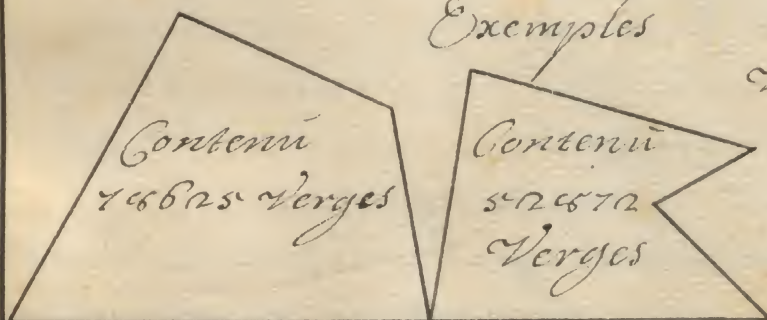 Exemples
Contenü
78625 Verges
Contenü
52872
Verges